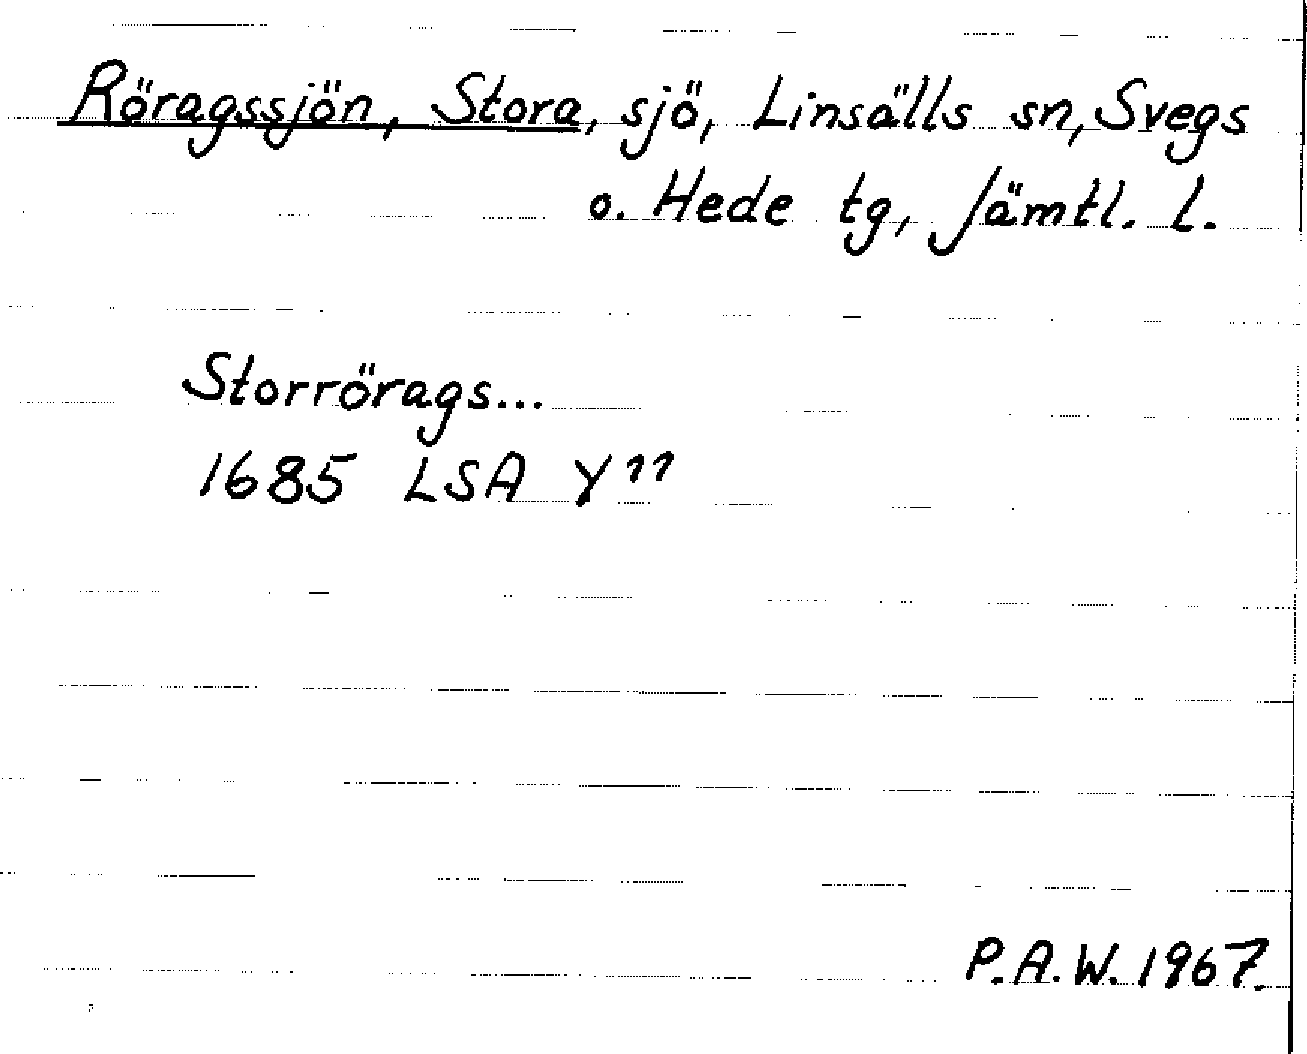 Röragssjön, Stora, sjö, Linsälls sn, Svegs
o. Hede tg, Jämtl. l.
Storrörags...
1685 LSA Y 11
P.A.W. 1967.